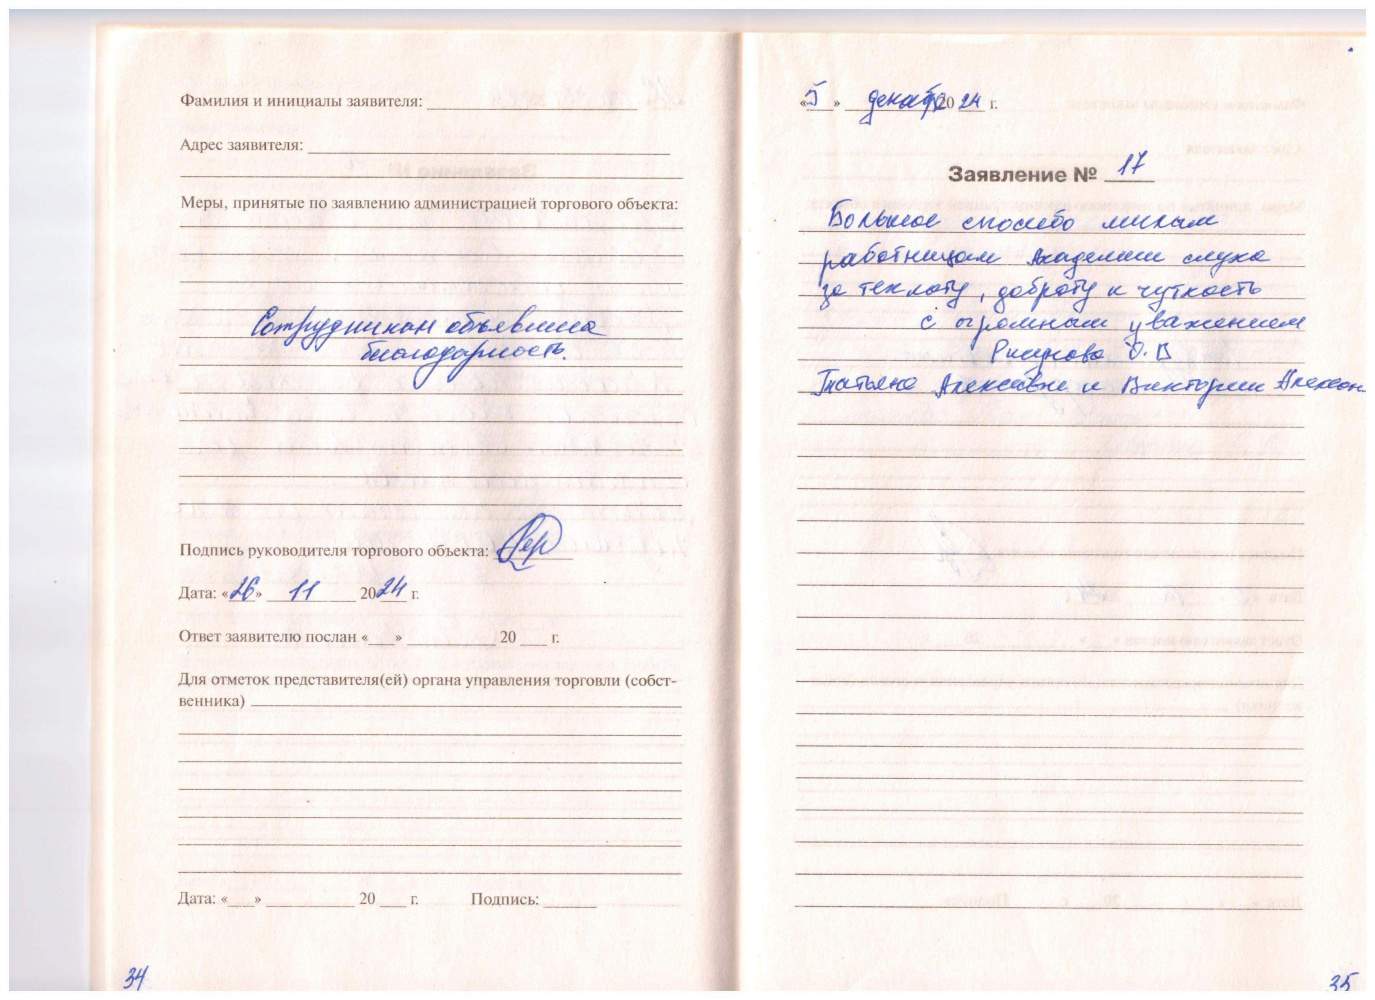 Фамилия и инициалы заявителя:
Адрес заявителя:
Меры, принятые по заявлению администрацией торгового объекта:
Сотрудникам объявлена
благодарность.
Подпись руководителя торгового объекта:
Дата: «26» 11 2024 г.
Ответ заявителю послан «___» ______ 20 ___ г.
Для отметок представителя(ей) органа управления торговли (собст-
венника)
Дата: «___» ______ 20 ___ г. Подпись: ______
34
«5» декабр 2024 г.
Заявление № 17
Большое спосибо милым
работницам Академии слуха
за теплоту, доброту и чуткость
С огромным уважением
О. В
Татьяне Алексевне и Виктории
35